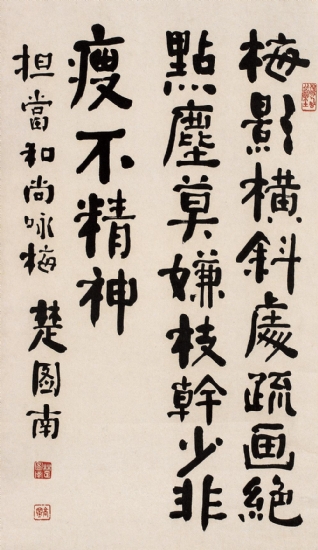 梅影橫斜處疏画絕
點塵莫嫌枝幹少非
瘦不精神
担當和尚咏梅 楚图南